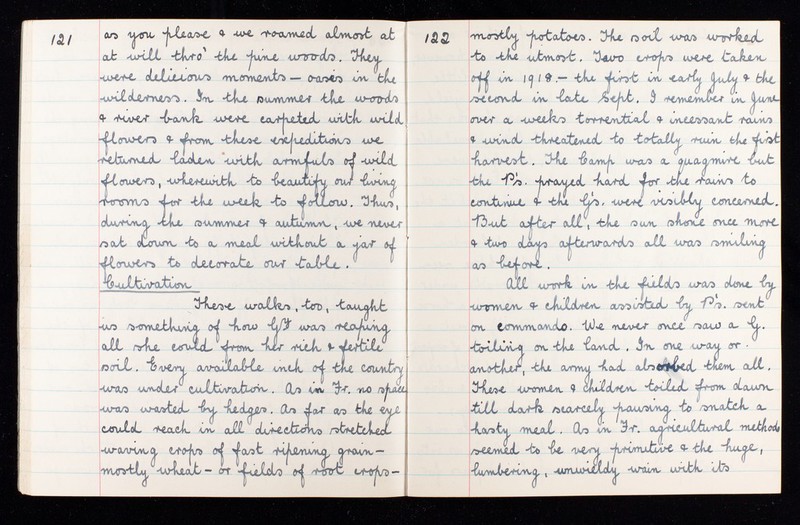 121
as you please & we roamed almost at
at will thro' the pine woods. They
were delicious moments — oases in the
wilderness. In the summer the woods
& river bank were carpeted with wild
flowers & from these expeditions we
returned laden with armfuls of wild
flowers, wherewith to beautify our living
rooms for the week to follow. Thus,
during the summer & autumn, we never
sat down to a meal without a jar of
flowers to decorate our table.
Cultivation
These walks, too, taught
us something of how was reaping
all she could from her rich & fertile
soil. Every available inch of the country
was under cultivation. As in Fr. no space
was wasted by hedges. As far as the eye
could reach in all directions stretched
waving crops of fast ripening grain —
mostly wheat — or fields of root crops —
122
mostly potatoes. The soil was worked
to the utmost. Two crops were taken
off in 1918 — the first in early July & the
second in late Sept. I remember in June
over a weeks torrential & incessant rains
& wind threatened to totally ruin the first
harvest. The Camp was a quagmire but
the P's. prayed hard for the rains to
continue & the G's. were visibly concerned.
But after all, the sun shone once more
& two days afterwards all was smiling
as before.
All work in the fields was done by
women & children assisted by P's. sent
on commando. We never once saw a G.
toiling on the land. In one way or
another, the army had absorbed them all.
These women & children toiled from dawn
till dark scarcely pausing to snatch a
hasty meal. As in Fr. agricultural methods
seemed to be very primitive & the huge,
lumbering, unwieldy wain with its